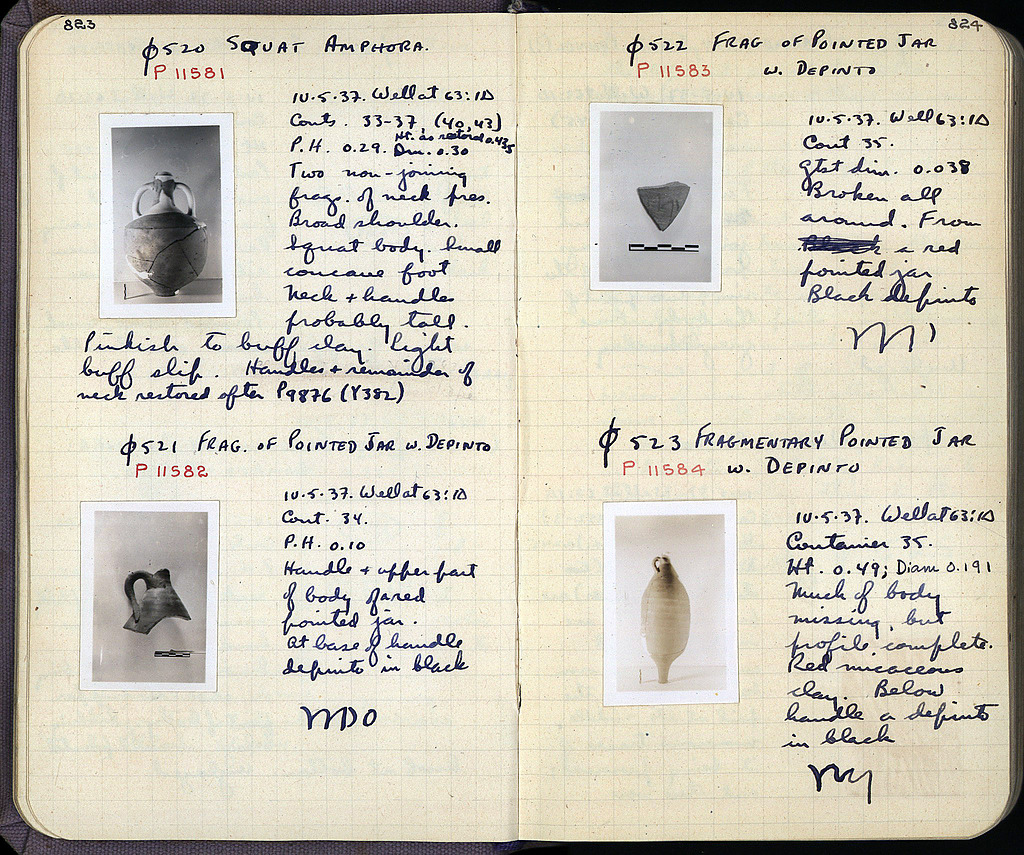 823
φ520 SQUAT AMPHORA.
P 11581
10.5.37. Well at 63:ΙΔ
Conts. 33-37, (40, 43)
P.H. 0.29. Ht. as restored 0.435
Dm. 0.30
Two non-joining
frags. of neck pres.
Broad shoulder.
Squat body. Small
concave foot
Neck + handles
probably tall.
Pinkish to buff clay. light
buff slip. Handles + remainder of
neck restored after P9876 (Y382)
φ521 FRAG. OF POINTED JAR W. DEPINTO
P 11582
10.5.37. Well at 63:ΙΔ
Cont. 34.
P.H. 0.10
Handle + upper part
of body of a red
pointed jar.
At base of handle
depinto in black
824
φ522 FRAG OF POINTED JAR
W. DEPINTO
P 11583
10.5.37. Well 63:ΙΔ
Cont 35.
Gtst dim. 0.038
Broken all
around. From
a red
pointed jar
Black depinto
φ523 FRAGMENTARY POINTED JAR
W. DEPINTO
P 11584
10.5.37. Well at 63:ΙΔ
Container 35.
Ht. 0.49; Diam 0.191
Much of body
missing, but
profile complete.
Red micaceous
clay. Below
handle a depinto
in black